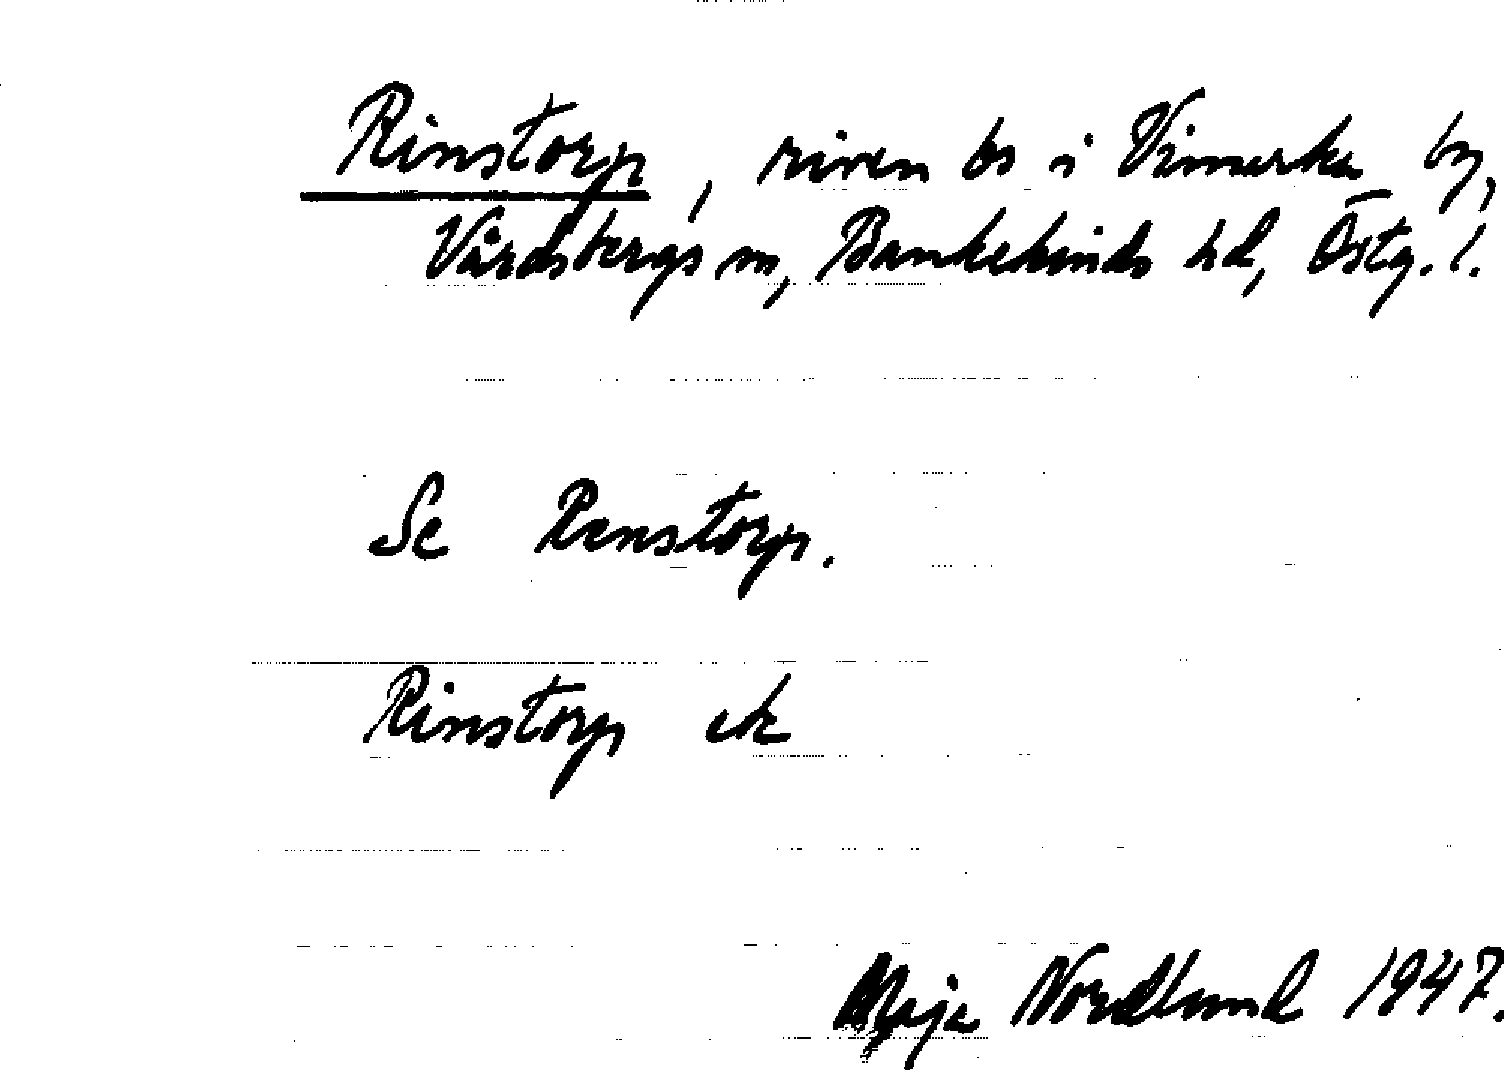 Rinstorp, riven bs i Vimarka by,
Vårdsbergs sn, Bankekinds hd, Östg. l.
Se Renstorp.
Rinstorp ek
Maja Nordlund 1947.